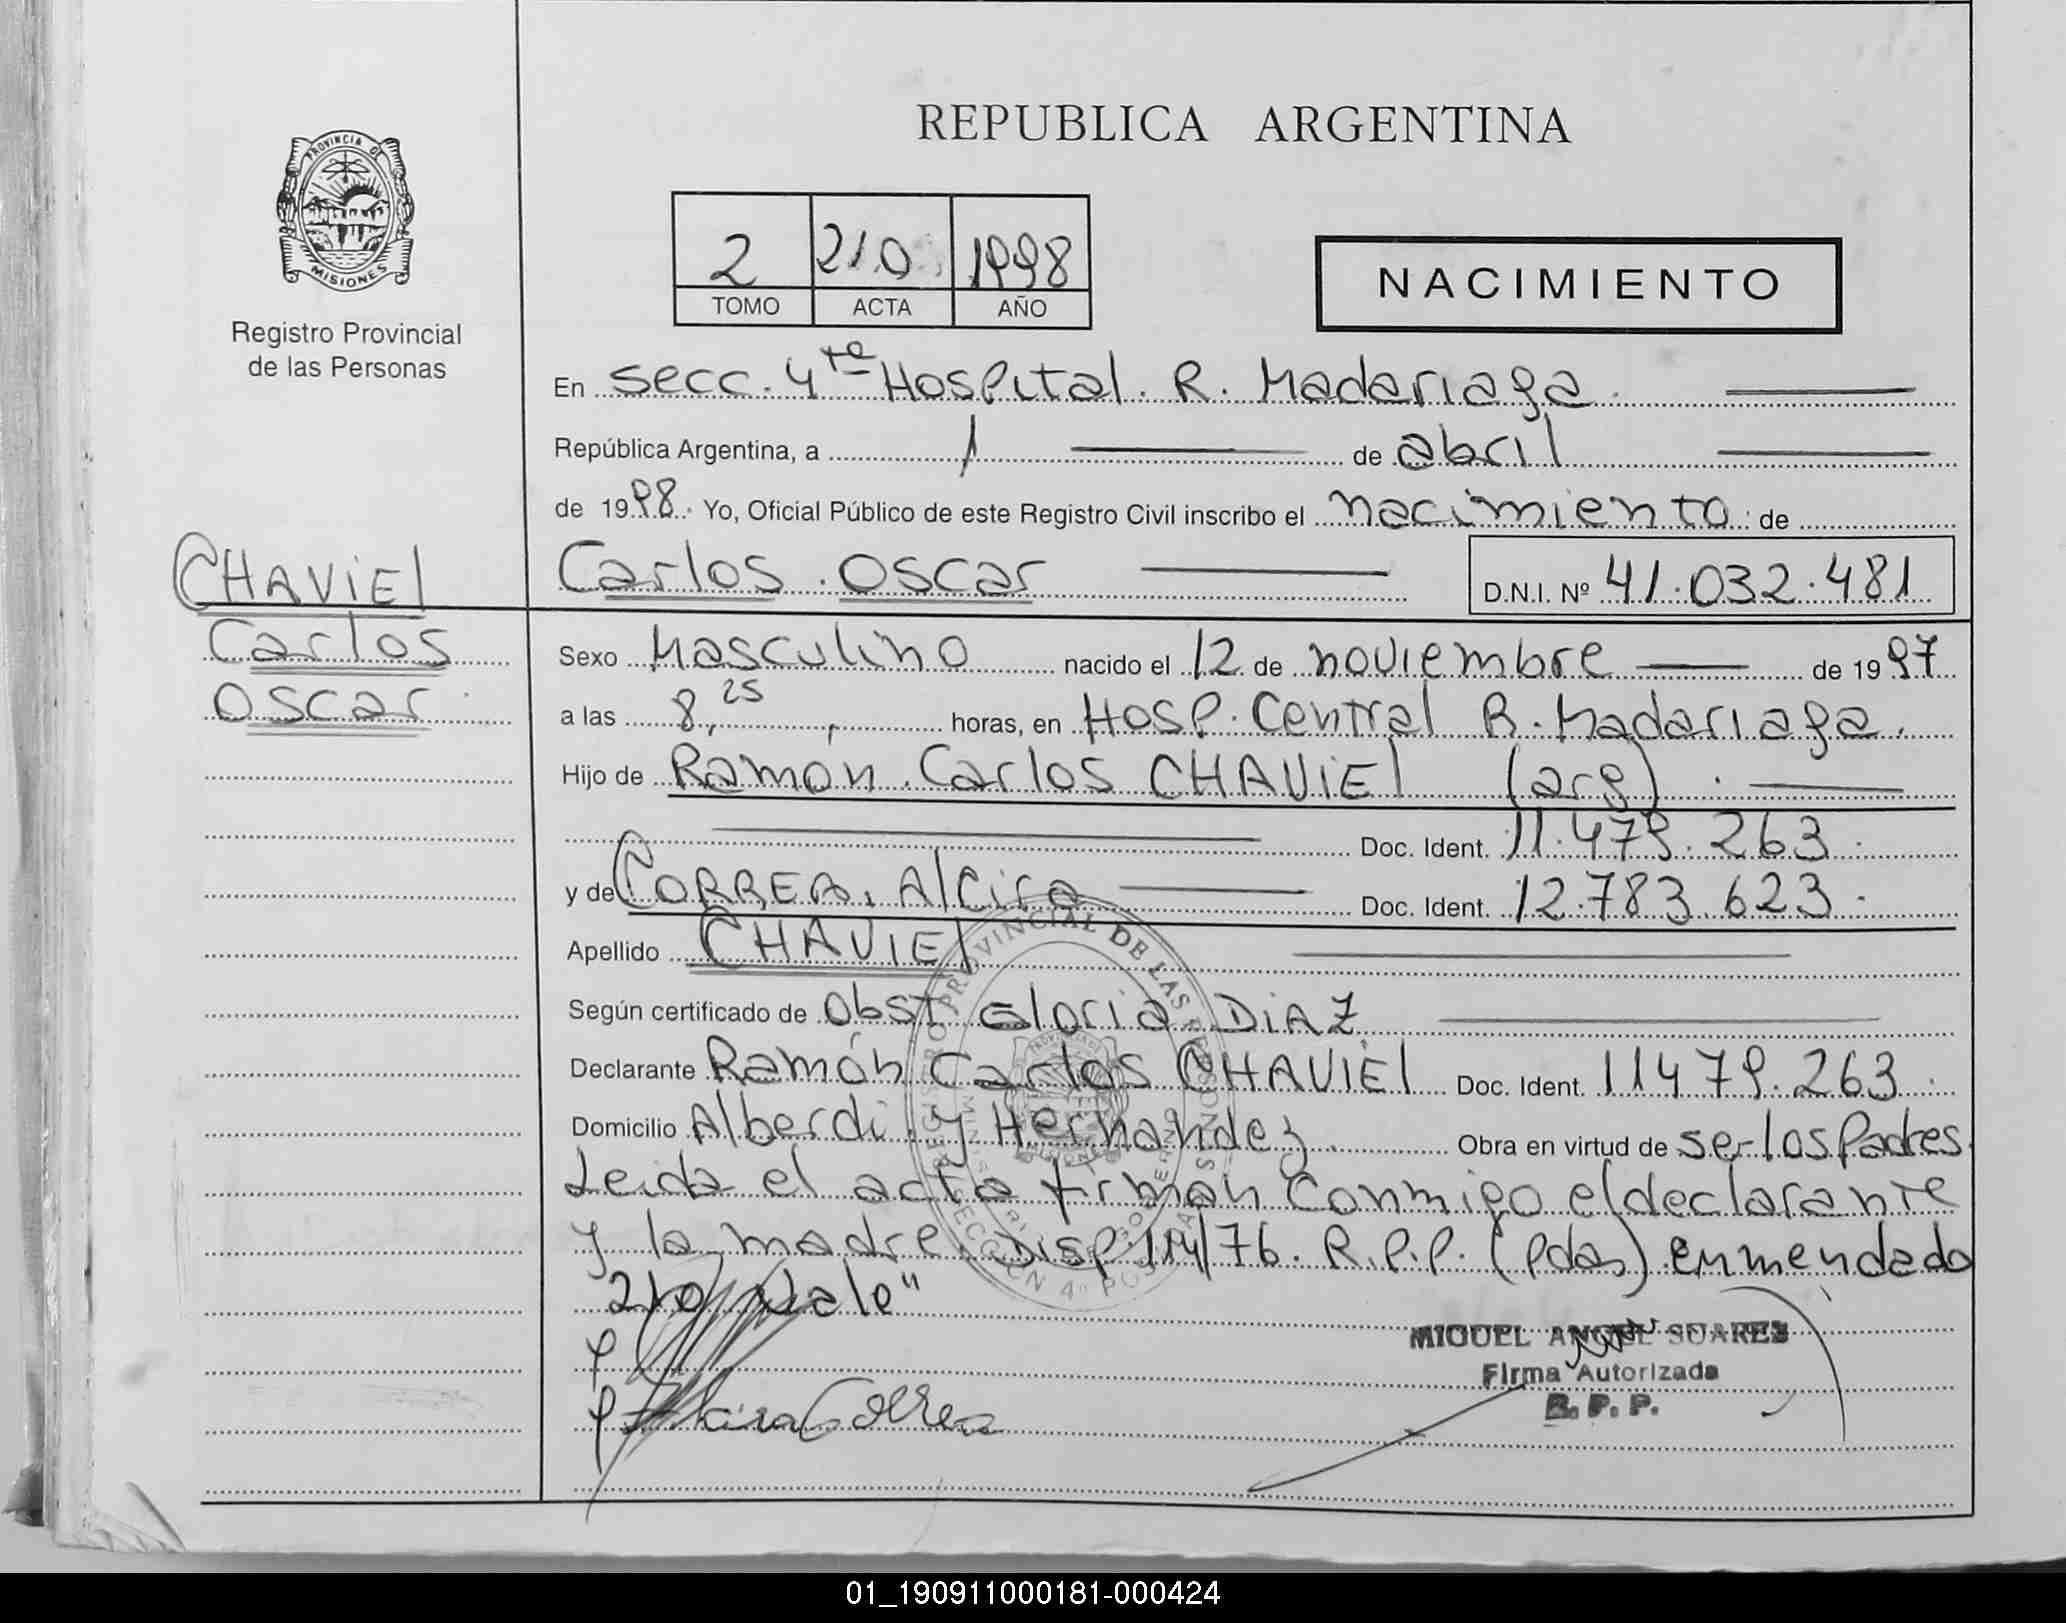 REPUBLICA ARGENTINA
PROVINCIA DE
MISIONES
Registro Provincial
de las Personas
2 210 1998
TOMO ACTA AÑO
NACIMIENTO
En secc. 4ta Hospital. R. Madariaga.
República Argentina, a 1 de abril
de 1998. Yo, Oficial Público de este Registro Civil inscribo el nacimiento de
CHAVIEL
Carlos
Oscar
Carlos Oscar D.N.I. Nº 41.032.481
Sexo Masculino nacido el 12 de noviembre de 1997
a las 8,25 horas, en Hosp. Central R. Madariaga.
Hijo de Ramón Carlos CHAVIEL (arg)
Doc. Ident. 11.479.263.
y de CORREA, Alcira Doc. Ident. 12.783.623.
Apellido CHAVIEL
Según certificado de Obst. Gloria DiAZ
Declarante Ramón Carlos CHAVIEL Doc. Ident. 11479.263.
Domicilio Alberdi y Hernández Obra en virtud de ser los Padres
Leida el acta firman conmigo el declarante
y la madre. Disp. 114/76. R.P.P. (Pdas) enmendado
"210 Vale"
Alcira Correa
MIGUEL ANGEL SUAREZ
Firma Autorizada
R. P. P.
01_190911000181-000424